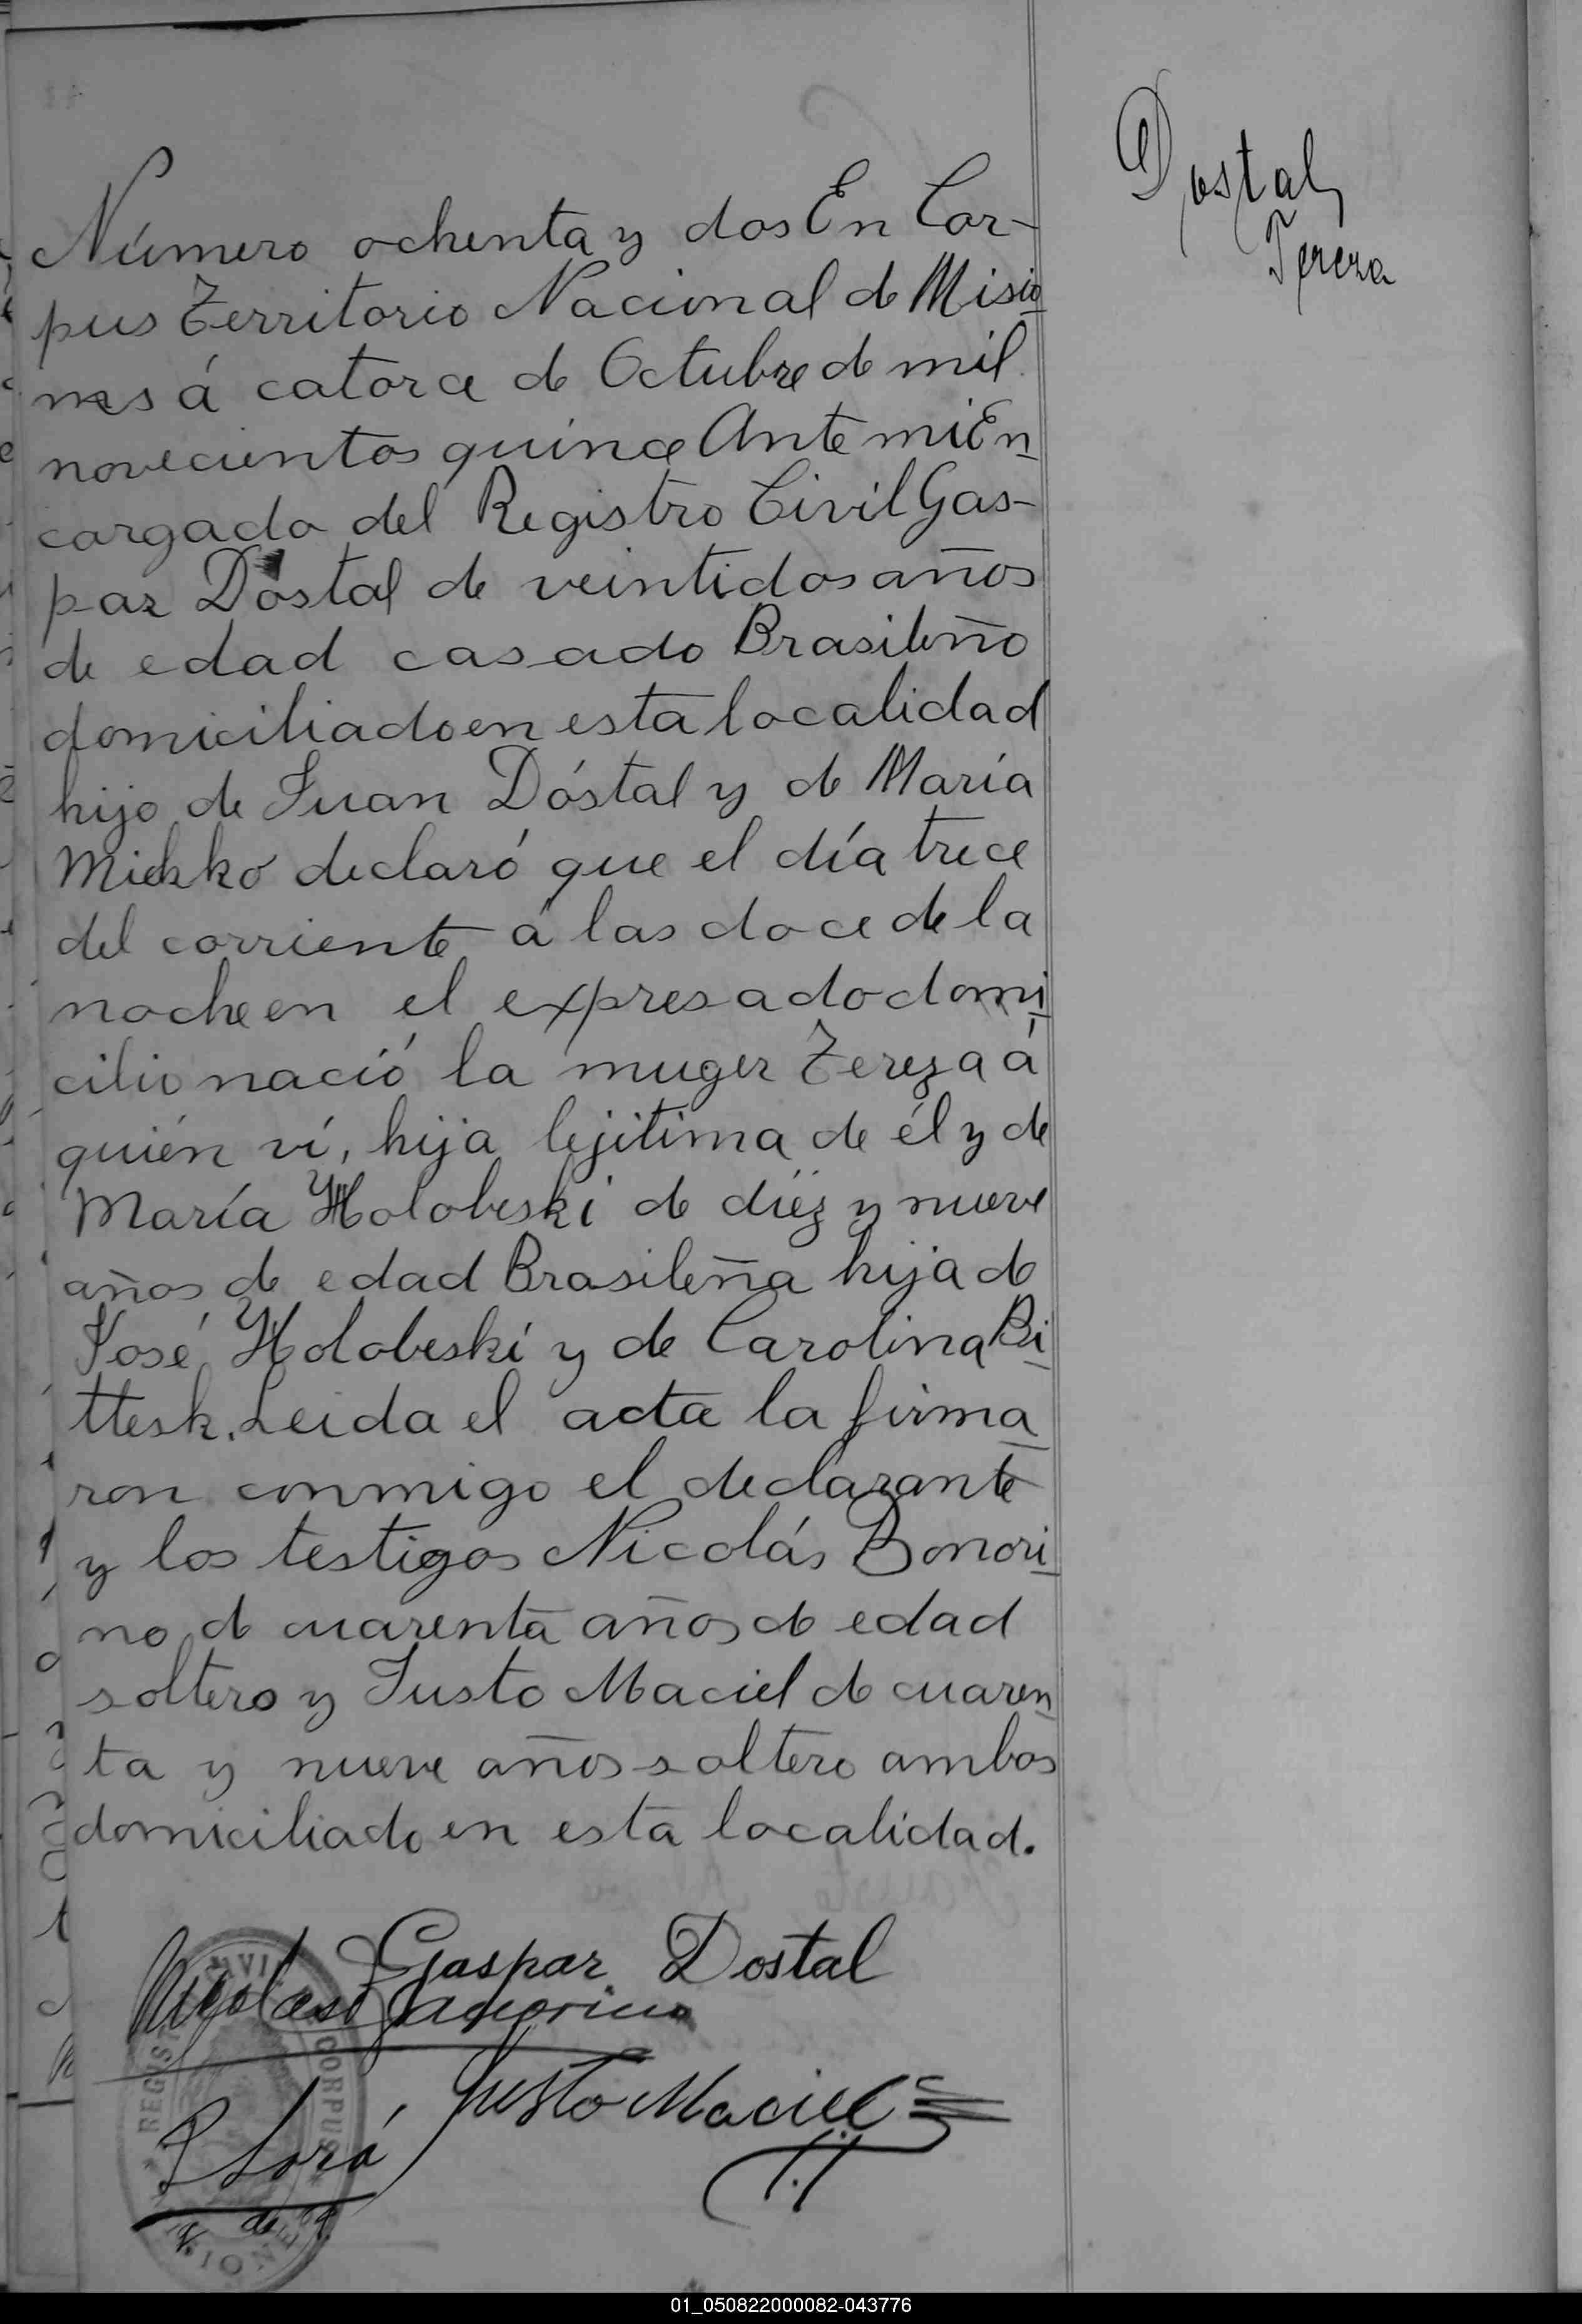 Dostal,
Tereza
Número ochenta y dos En Cor-
pus Territorio Nacional de Misio
nes á catorce de Octubre de mil
novecientos quince Ante mi En
cargado del Registro Civil Gas-
par Dostal de veintidos años
de edad casado Brasileño
domiciliado en esta localidad
hijo de Juan Dóstal y de María
declaró que el día trece
del corriente á las doce de la
noche en el expresado domi
cilio nació la muger Tereza á
quién ví, hija lejitima de él y de
María Holobeski de diéz y nueve
años de edad Brasileña hija de
José Holobeski y de Carolina Bi
ttesk. Leida el acta la firma
ron conmigo el declarante
y los testigos Nicolás Bonori
no de cuarenta años de edad
soltero y Justo Maciel de cuaren
ta y nueve años soltero ambos
domiciliado en esta localidad.
Gaspar Dostal
Nicolas
Justo Maciel
REGIS CIVI CORPUS